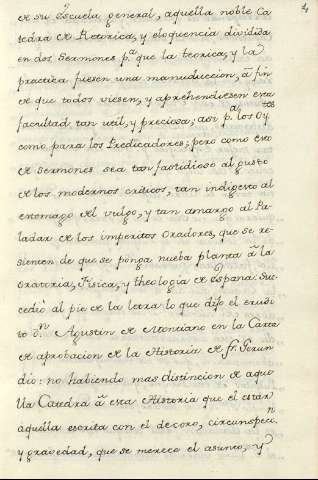 de su Escuela general, aquella noble Ca
tedra de Retorica, y eloquencia dividida
en dos Sermones p.ª que la teorica, y la
practica fuesen una manuduccion, â fin
de que todos viesen, y aprehendiesen esta
facultad tan util, y preciosa; asi p.ª los Oy.tes
como para los Predicadores; pero como esto
de Sermones sea tan fastidioso al gusto
de los modernos criticos, tan indigesto al
estomago del vulgo, y tan amargo al Pa-
ladar de los imperitos Oradores, que se re-
sienten de que se ponga nueba planta â la
oratoria, Fisica, y theologia de España. Su-
cedió al pie de la letra lo que dijo el erudi
to D.n Agustin de Montiano en la Carta
de aprobacion de la Historia de fr. Gerun
dio: no habiendo mas distincion de aque
lla Catedra â esta Historia que el estar
aquella escrita con el decoro, circunspec.n
y gravedad, que se merece el asunto, y